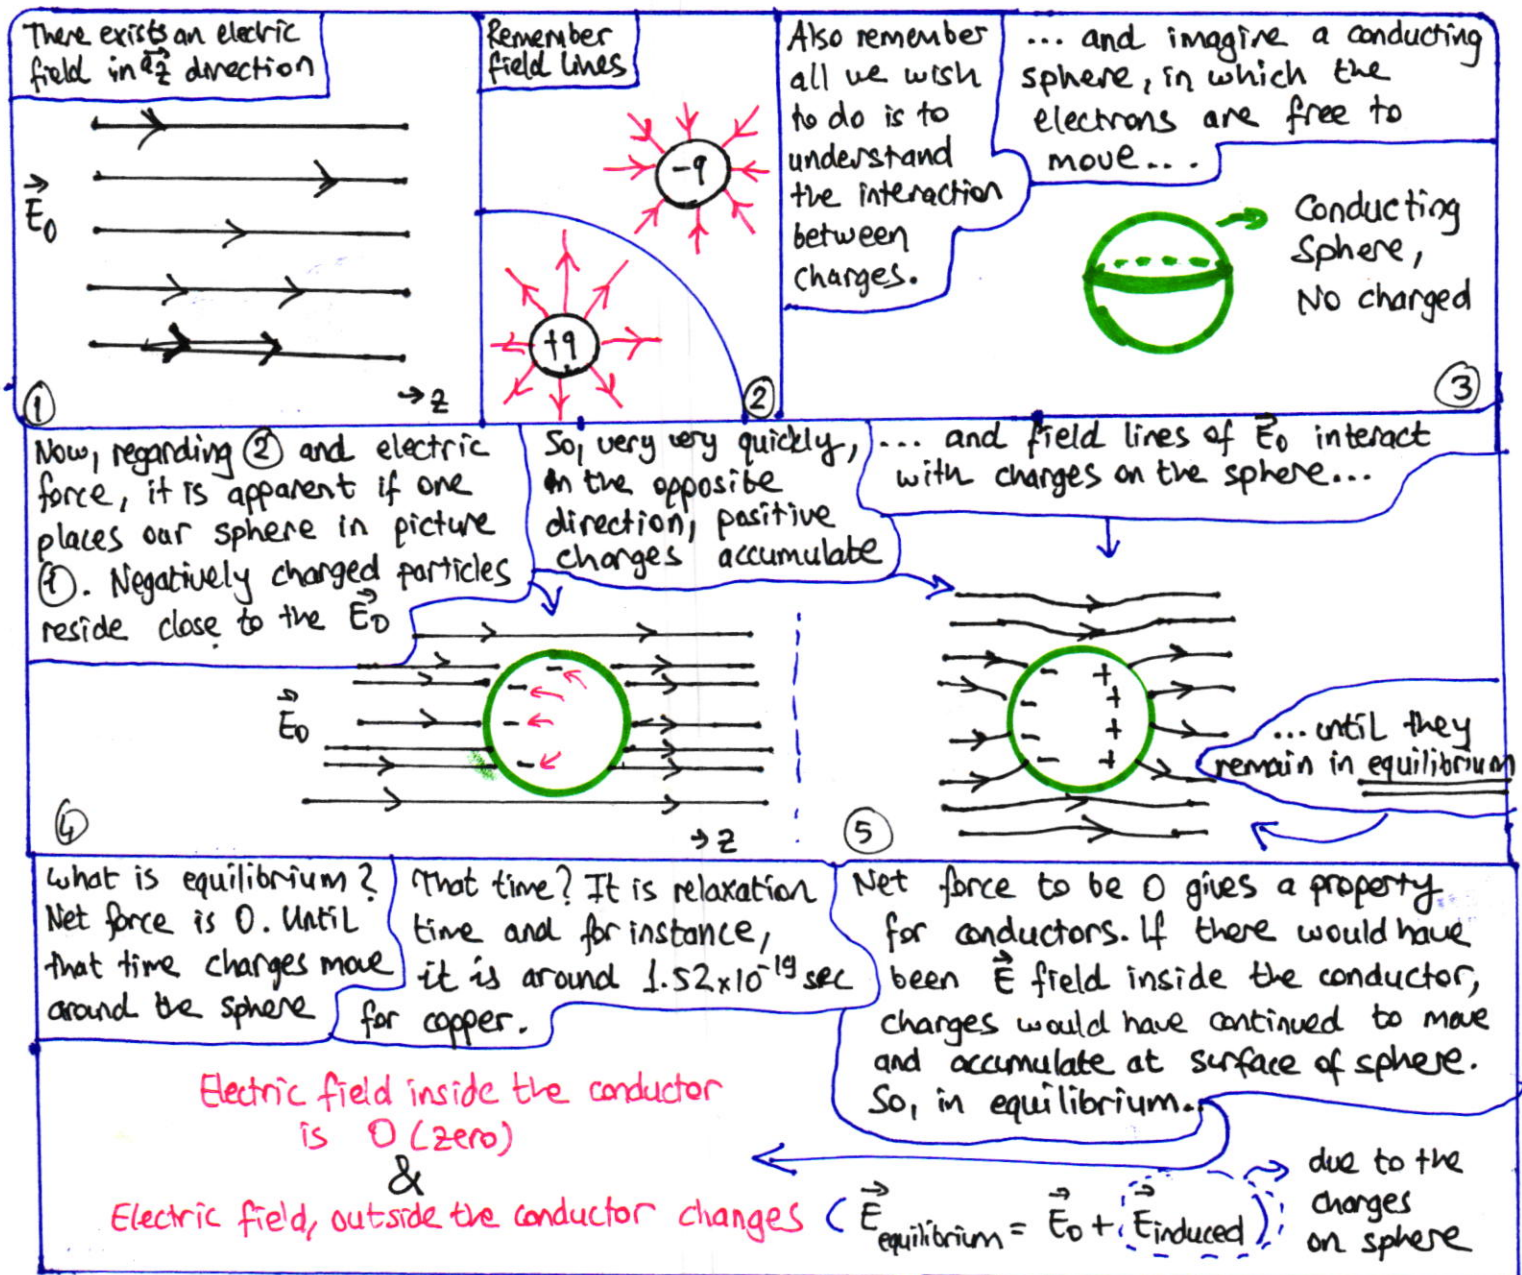 There exists an electric
field in a⃗z direction
E⃗0
→ z
1
Remember
field lines
-q
+q
2
Also remember
all we wish
to do is to
understand
the interaction
between
charges.
... and imagine a conducting
sphere, in which the
electrons are free to
move....
Conducting
Sphere,
No charged
3
Now, regarding 2 and electric
force, it is apparent if one
places our sphere in picture
1. Negatively charged particles
reside close to the E⃗0
E⃗0
- - - -
→ z
4
So, very very quickly,
in the opposite
direction, positive
charges accumulate
... and field lines of E⃗0 interact
with charges on the sphere...
- +
- +
- +
- +
...until they
remain in equilibrium
5
What is equilibrium?
Net force is 0. Until
that time charges move
around the sphere
That time? It is relaxation
time and for instance,
it is around 1.52x10⁻¹⁹ sec
for copper.
Net force to be 0 gives a property
for conductors. If there would have
been E⃗ field inside the conductor,
charges would have continued to move
and accumulate at surface of sphere.
So, in equilibrium..
Electric field inside the conductor
is 0 (zero)
&
Electric field, outside the conductor changes (E⃗equilibrium = E⃗0 + E⃗induced)
due to the
charges
on sphere